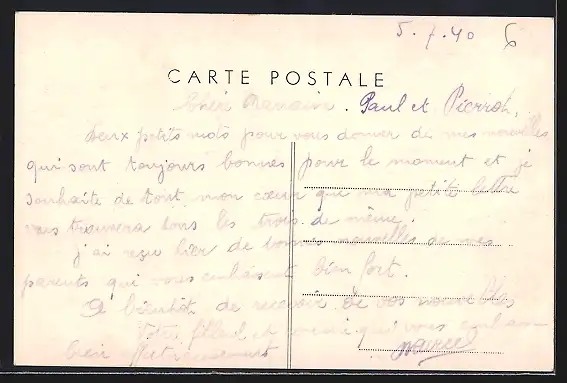 5.7.40
CARTE POSTALE
Cher Parrain. Paul et Pierrot,
Deux petits mots pour vous donner de mes nouvelles
qui sont toujours bonnes pour le moment et je
souhaite de tout mon cœur que ma petite lettre
vous trouvera tous les trois de même.
J'ai reçu hier de bonnes nouvelles de mes
parents qui vous embrassent bien fort.
A bientôt de recevoir de vos nouvelles
Votre filleul et qui vous
bien affectueusement
Marcel